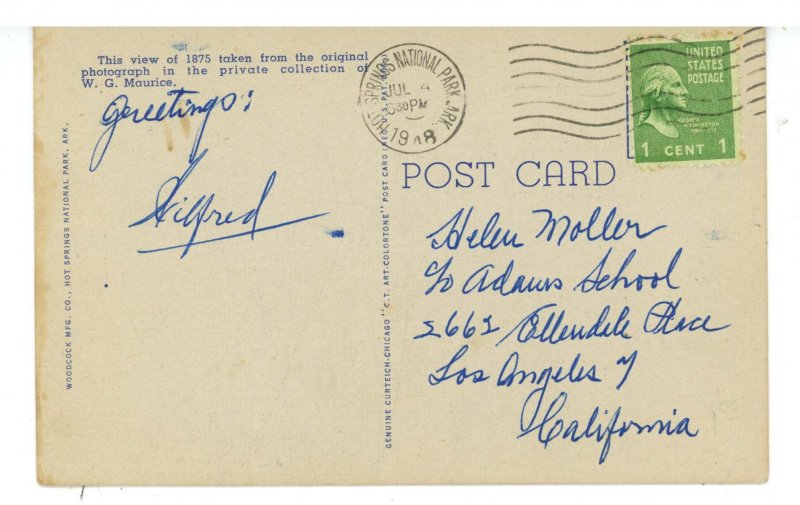 This view of 1875 taken from the original
photograph in the private collection of
W. G. Maurice.
Greetings:
Wilfred
WOODCOCK MFG. CO., HOT SPRINGS NATIONAL PARK, ARK.
GENUINE CURTEICH-CHICAGO "C.T. ART-COLORTONE" POST CARD (REG. U.S. PAT. OFF.)
HOT SPRINGS NATIONAL PARK, ARK.
JUL 4
530PM
1948
UNITED
STATES
POSTAGE
GEORGE
WASHINGTON
1 CENT 1
POST CARD
Helen Moller
c/o Adams School
2662 Ellendale Place
Los Angeles 7
California